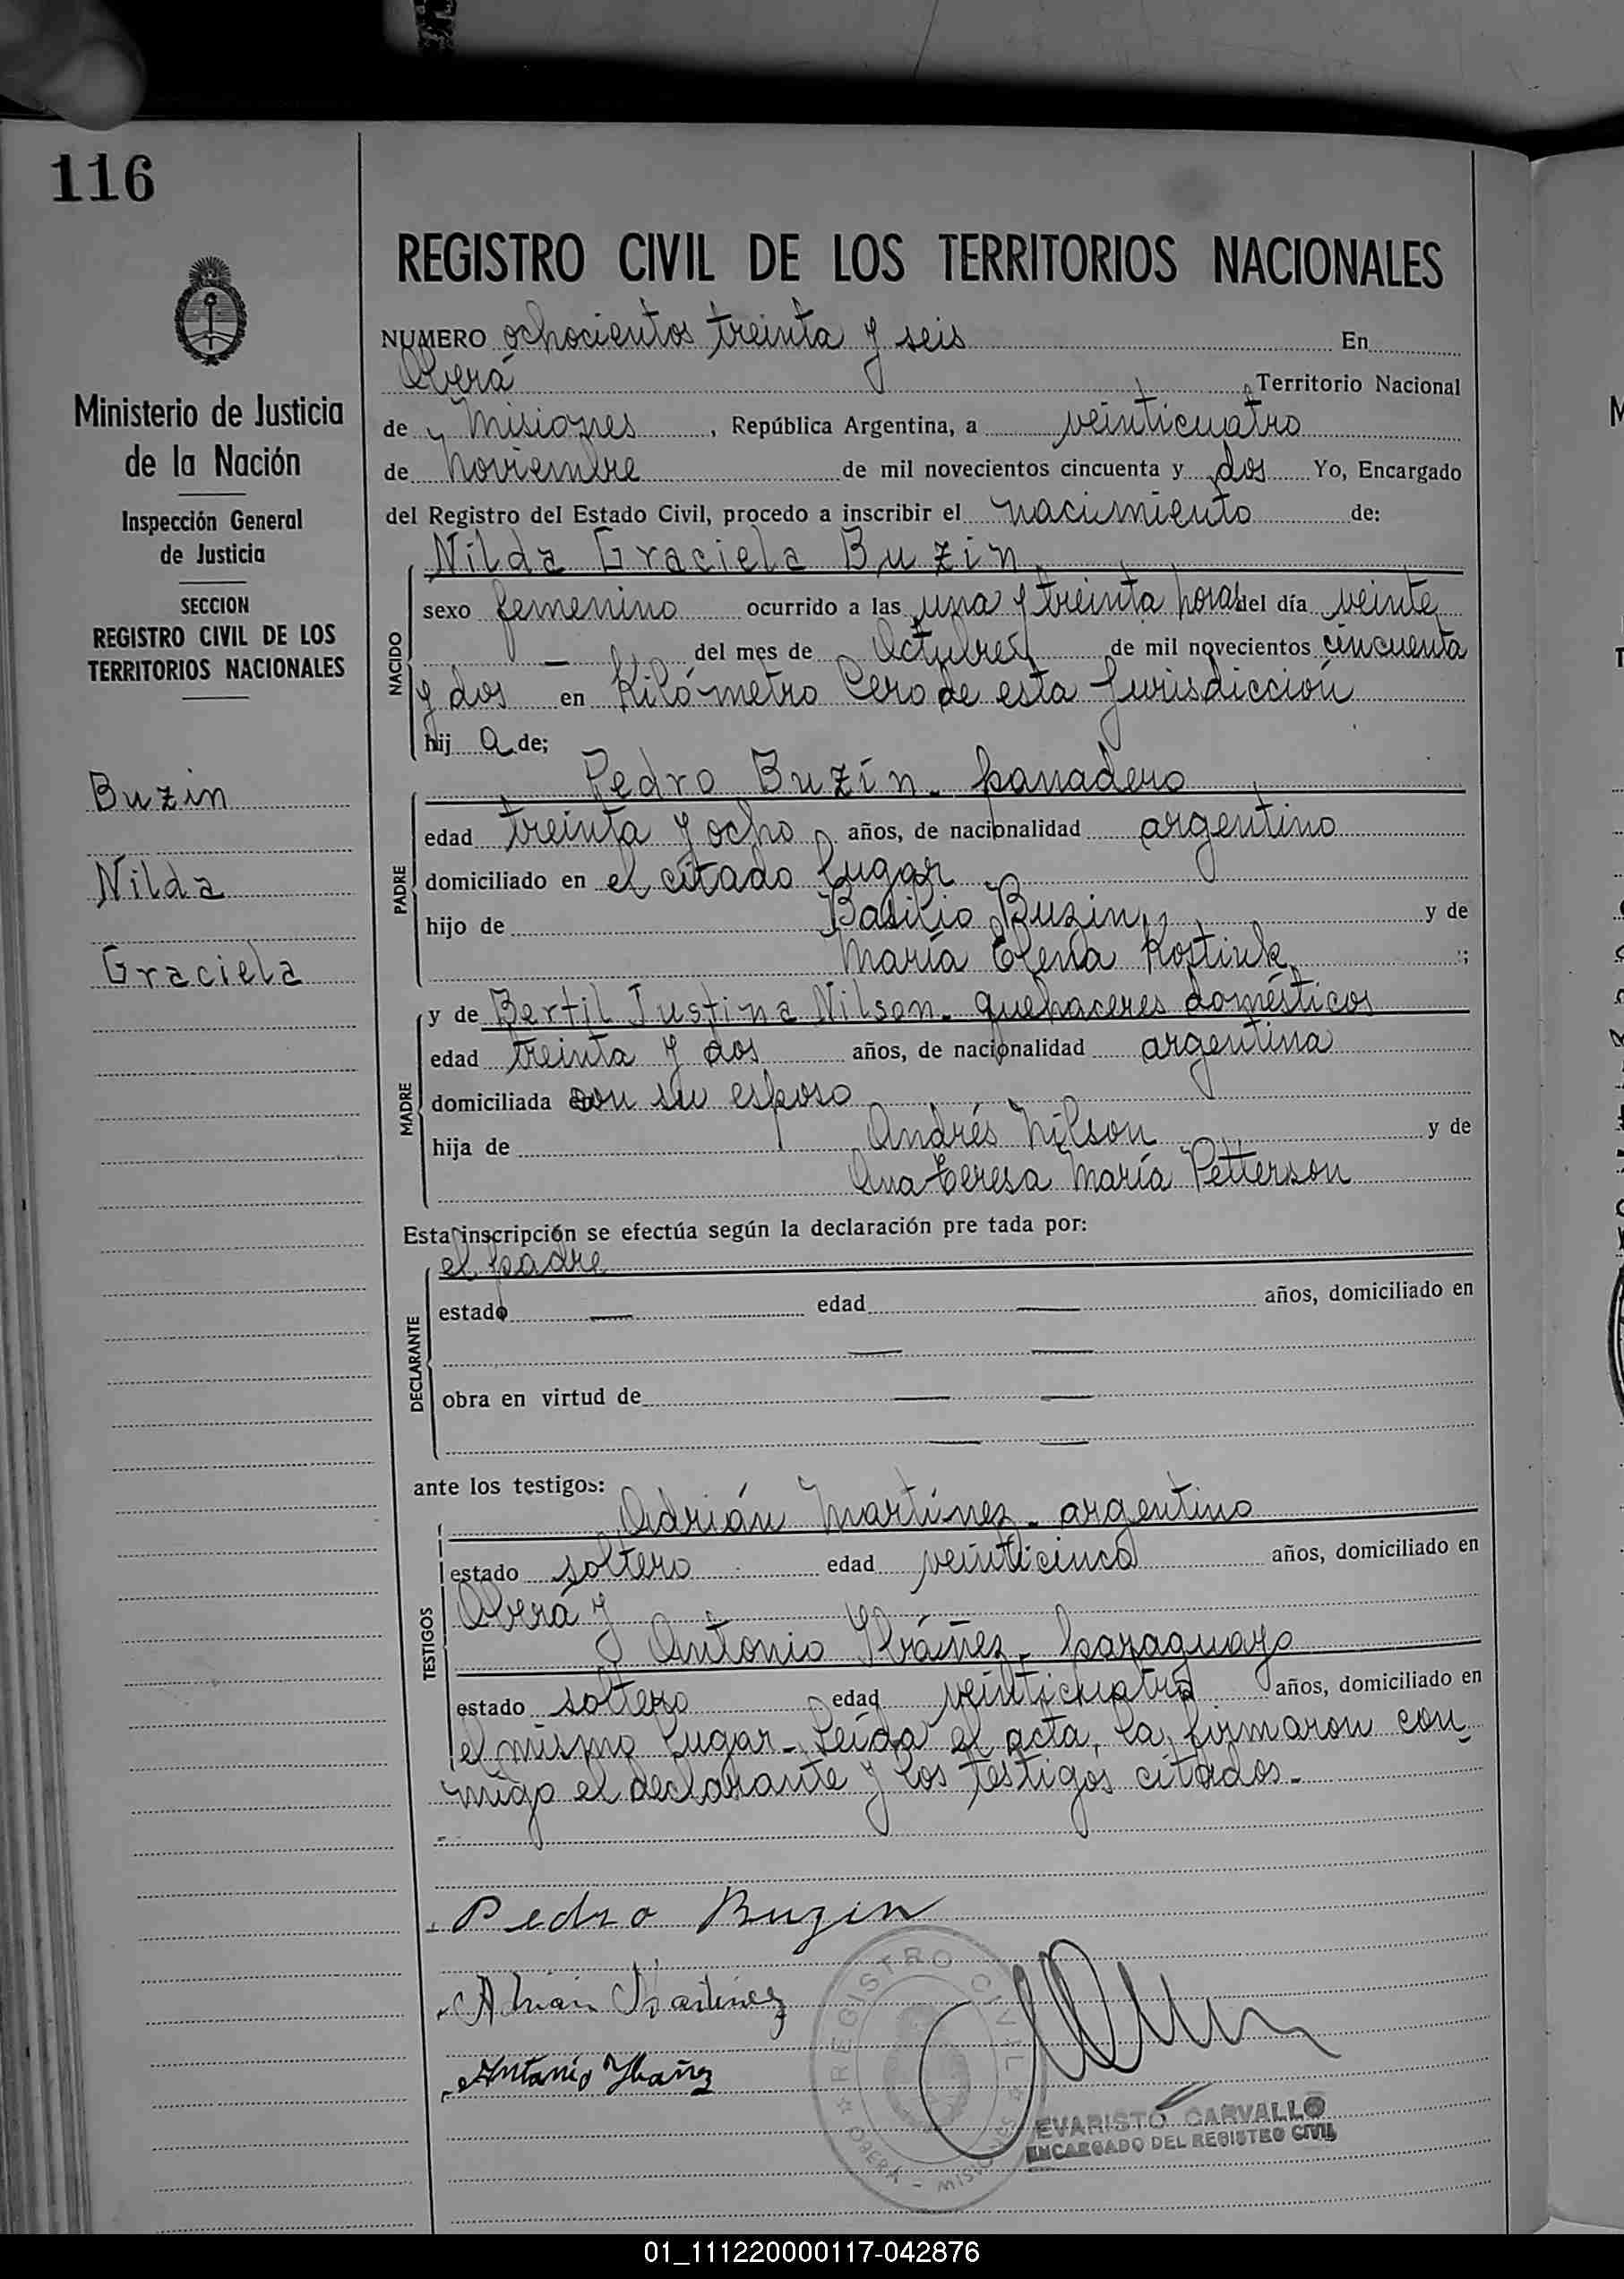 116
Ministerio de Justicia
de la Nación
Inspección General
de Justicia
SECCION
REGISTRO CIVIL DE LOS
TERRITORIOS NACIONALES
Buzin
Nilda
Graciela
REGISTRO CIVIL DE LOS TERRITORIOS NACIONALES
NUMERO ochocientos treinta y seis En
Oberá Territorio Nacional
de Misiones, República Argentina, a veinticuatro
de noviembre de mil novecientos cincuenta y dos Yo, Encargado
del Registro del Estado Civil, procedo a inscribir el nacimiento de:
NACIDO
Nilda Graciela Buzin
sexo femenino ocurrido a las una y treinta horas del día veinte
— del mes de Octubre de mil novecientos cincuenta
y dos en Kilómetro Cero de esta Jurisdicción
hij a de;
PADRE
Pedro Buzín - panadero
edad treinta y ocho años, de nacionalidad argentino
domiciliado en el citado lugar
hijo de Basilio Buzin y de
María Elena Kostiuk ;
MADRE
y de Bertil Justina Nilson - quehaceres domésticos
edad treinta y dos años, de nacionalidad argentina
domiciliada con su esposo
hija de Andrés Nilson y de
Ana Teresa María Petterson
Esta inscripción se efectúa según la declaración pre tada por:
DECLARANTE
el padre
estado — edad — años, domiciliado en
— —
obra en virtud de — —
— —
ante los testigos:
TESTIGOS
Adrián Martínez - argentino
estado soltero edad veinticinco años, domiciliado en
Oberá y
Antonio Ibáñez - paraguayo
estado soltero edad veinticuatro años, domiciliado en
el mismo lugar - Leída el acta, la firmaron con
migo el declarante y los testigos citados. -
Pedro Buzin
Adrián Martinez
Antonio Ybañez
REGISTRO CIVIL
OBERA - MISIONES
EVARISTO CARVALLO
ENCARGADO DEL REGISTRO CIVIL
01_111220000117-042876